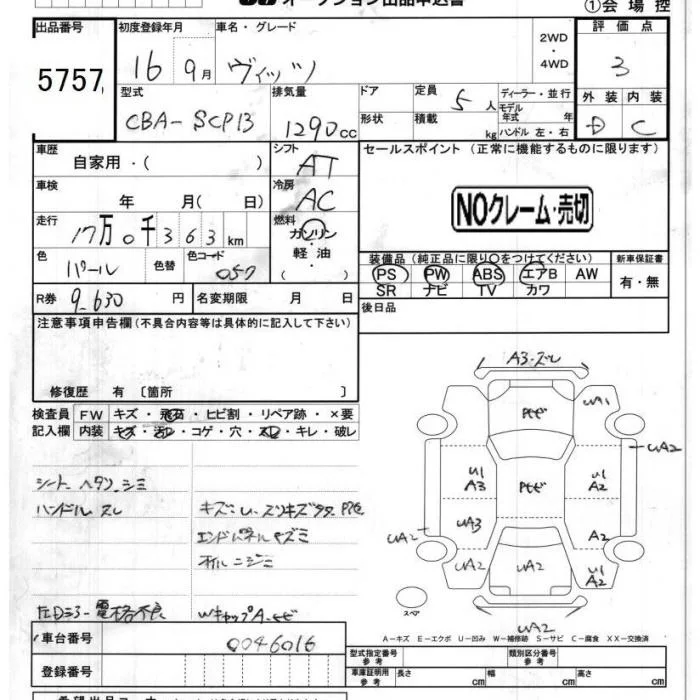 オークション出品申込書
①会場控
出品番号
5757
初度登録年月
16 9月
車名・グレード
ヴィッツ
2WD
・
4WD
評価点
3
外装 内装
D C
型式
CBA-SCP13
排気量
1290cc
ドア
形状
定員 5人
積載 kg
ディーラー・並行
モデル年式 年
ハンドル 左・右
車歴
自家用・( )
シフト
AT
車検
年 月(日)
冷房
AC
走行
17万0千363km
燃料
ガソリン
・
軽油
・
( )
色
パール
色替
色コード
057
R券 9,630円
名変期限 月 日
セールスポイント (正常に機能するものに限ります)
NOクレーム・売切
装備品 (純正品に限り○をつけてください)
PS PW ABS エアB AW
SR ナビ TV カワ
新車保証書
有・無
後日品
注意事項申告欄(不具合内容等は具体的に記入して下さい)
修復歴 有 〔箇所 〕
検査員記入欄
FW キズ・飛石・ヒビ割・リペア跡・×要
内装 キズ・汚れ・コゲ・穴・スレ・キレ・破レ
シート ヘタリ シミ
ハンドル スレ
エンドパネル キズミ
オイルニジミ
A3・ズレ
UA1
UA2
U1
A3
U1
A2
UA3
A2
UA2
UA2
UA2
U1
A2
スペア
UA2
A-キズ E-エクボ U-凹み W-補修跡 S-サビ C-腐食 XX-交換済
車台番号
0046016
登録番号
型式指定番号
参考
類別区分番号
参考
車庫証明用
参考
長さ cm 幅 cm 高さ cm
希望出品コーナー